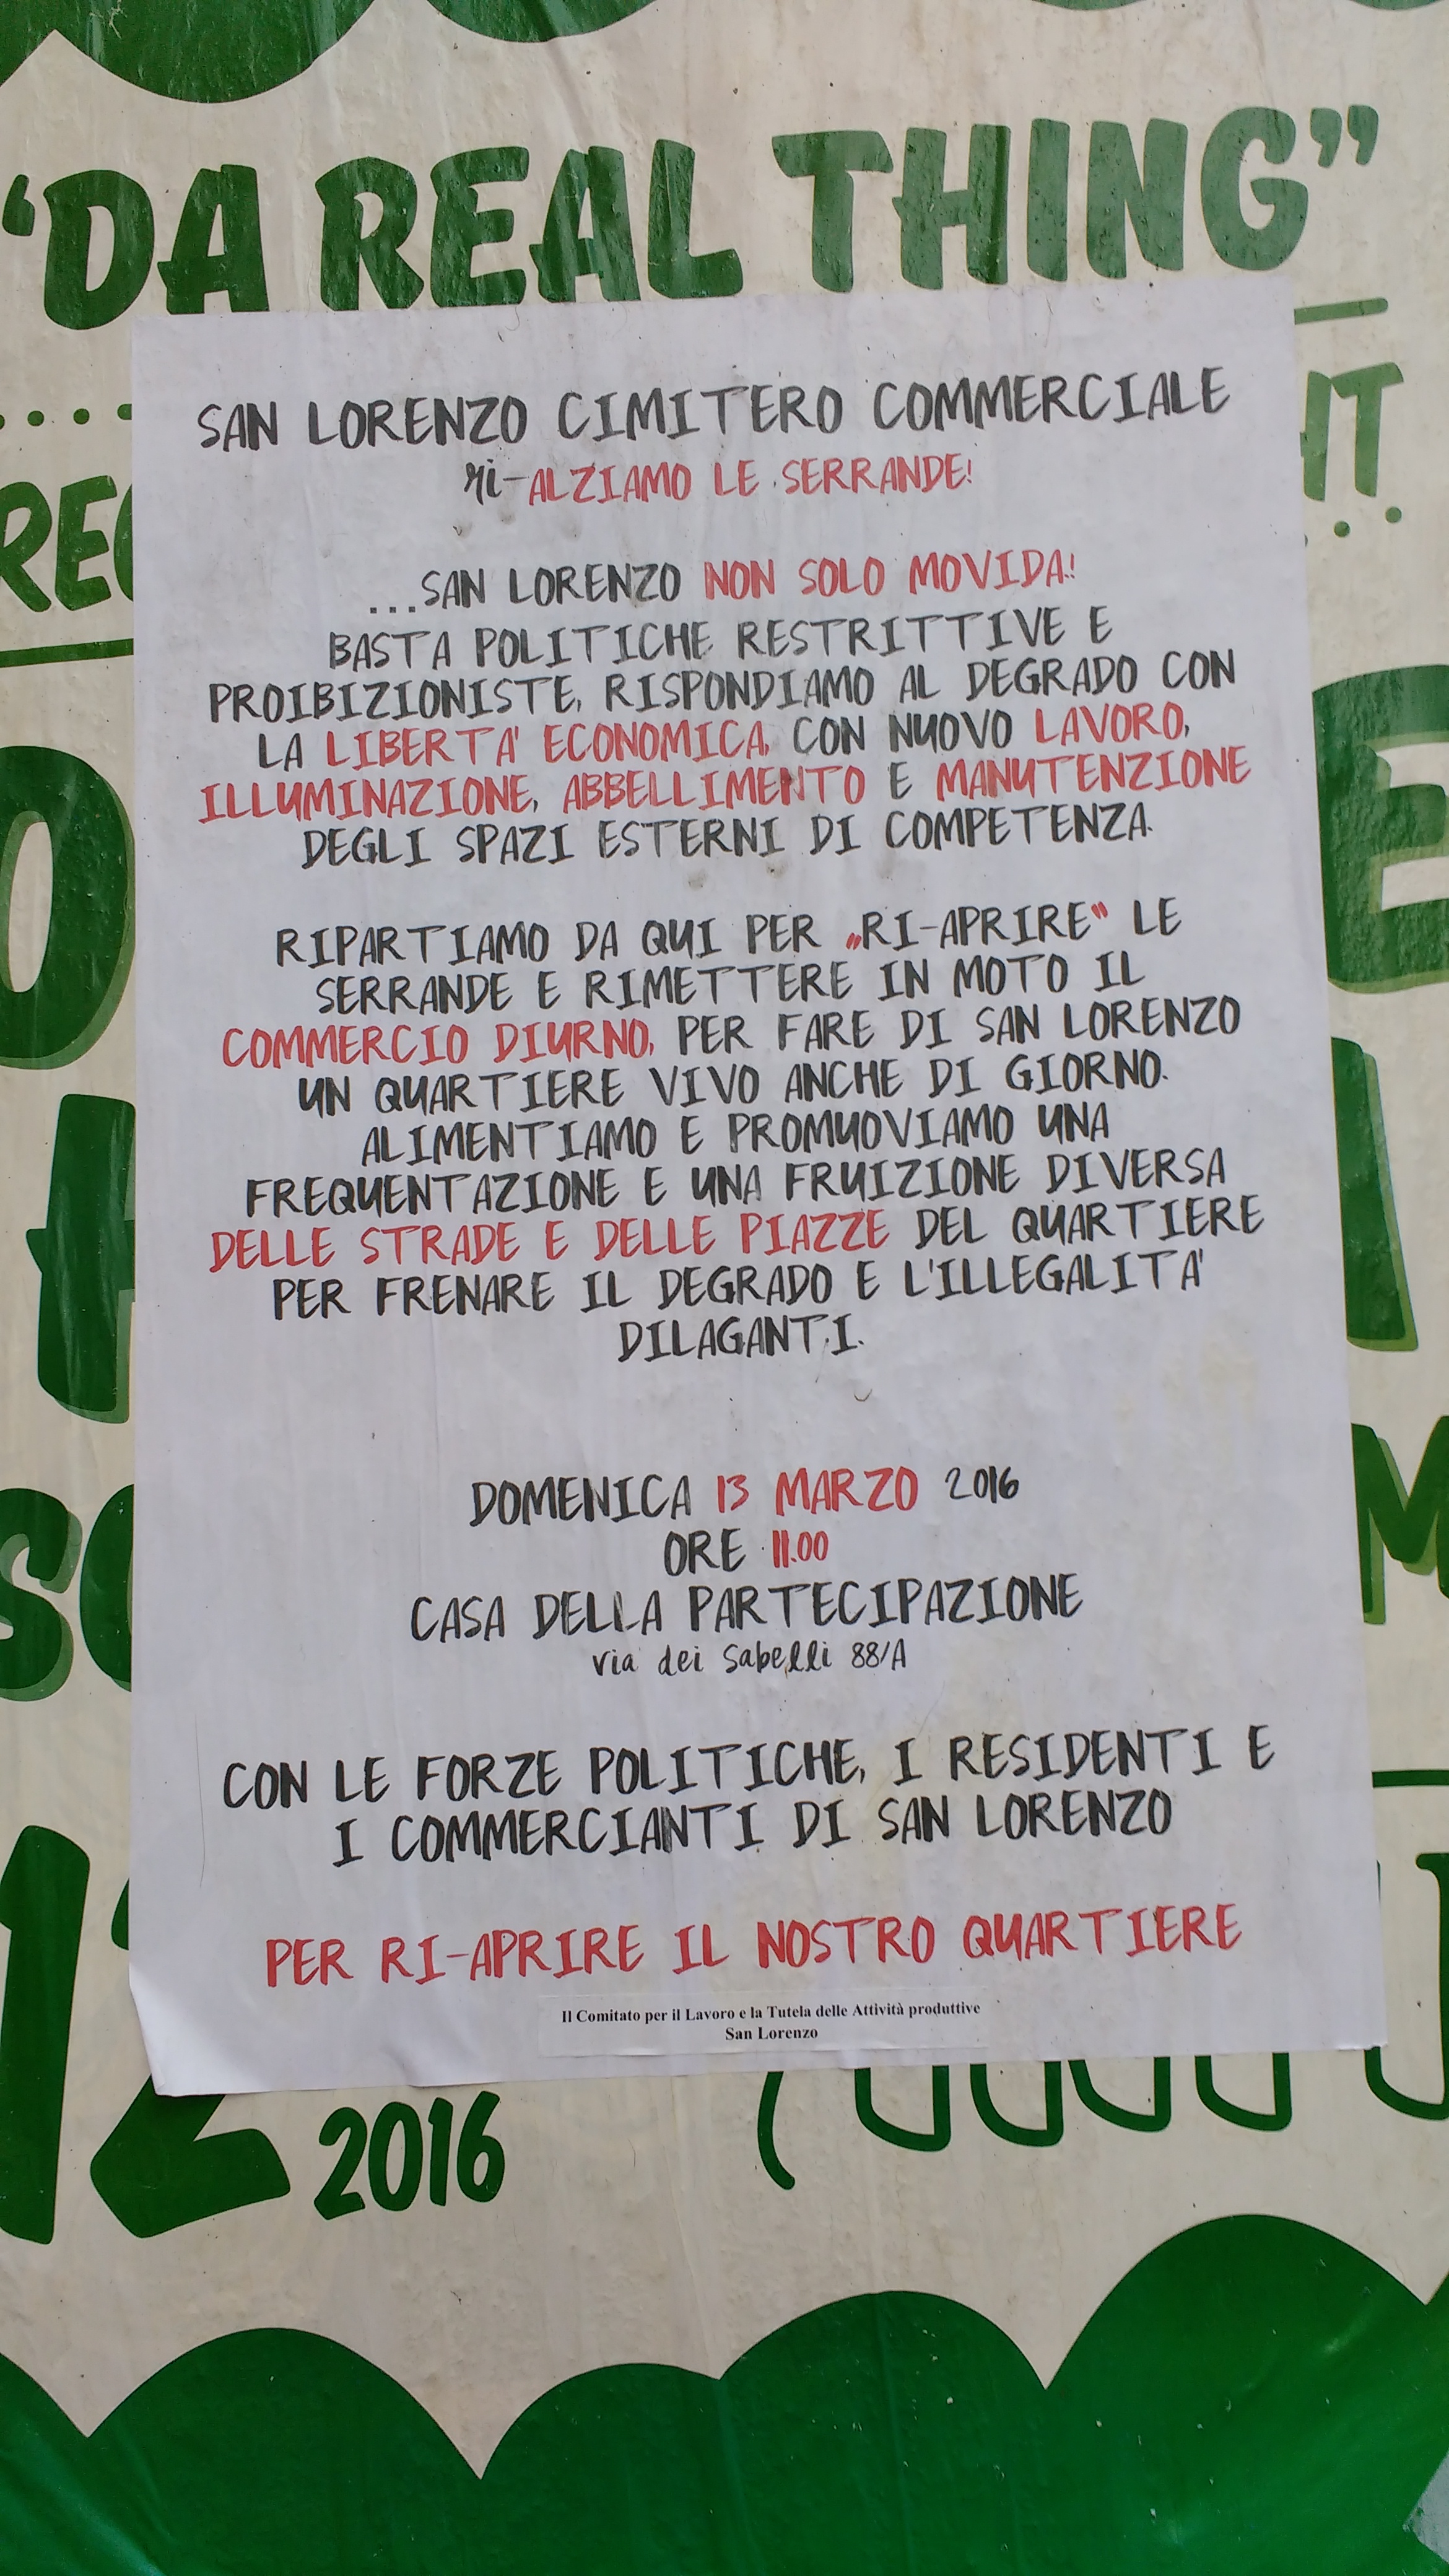 “DA REAL THING”
SAN LORENZO CIMITERO COMMERCIALE
ri-ALZIAMO LE SERRANDE!
...SAN LORENZO NON SOLO MOVIDA!
BASTA POLITICHE RESTRITTIVE E
PROIBIZIONISTE, RISPONDIAMO AL DEGRADO CON
LA LIBERTA' ECONOMICA, CON NUOVO LAVORO,
ILLUMINAZIONE, ABBELLIMENTO E MANUTENZIONE
DEGLI SPAZI ESTERNI DI COMPETENZA.
RIPARTIAMO DA QUI PER „RI-APRIRE“ LE
SERRANDE E RIMETTERE IN MOTO IL
COMMERCIO DIURNO, PER FARE DI SAN LORENZO
UN QUARTIERE VIVO ANCHE DI GIORNO.
ALIMENTIAMO E PROMUOVIAMO UNA
FREQUENTAZIONE E UNA FRUIZIONE DIVERSA
DELLE STRADE E DELLE PIAZZE DEL QUARTIERE
PER FRENARE IL DEGRADO E L'ILLEGALITA'
DILAGANTI.
DOMENICA 13 MARZO 2016
ORE 11.00
CASA DELLA PARTECIPAZIONE
via dei Sabelli 88/A
CON LE FORZE POLITICHE, I RESIDENTI E
I COMMERCIANTI DI SAN LORENZO
PER RI-APRIRE IL NOSTRO QUARTIERE
Il Comitato per il Lavoro e la Tutela delle Attività produttive
San Lorenzo
12 2016